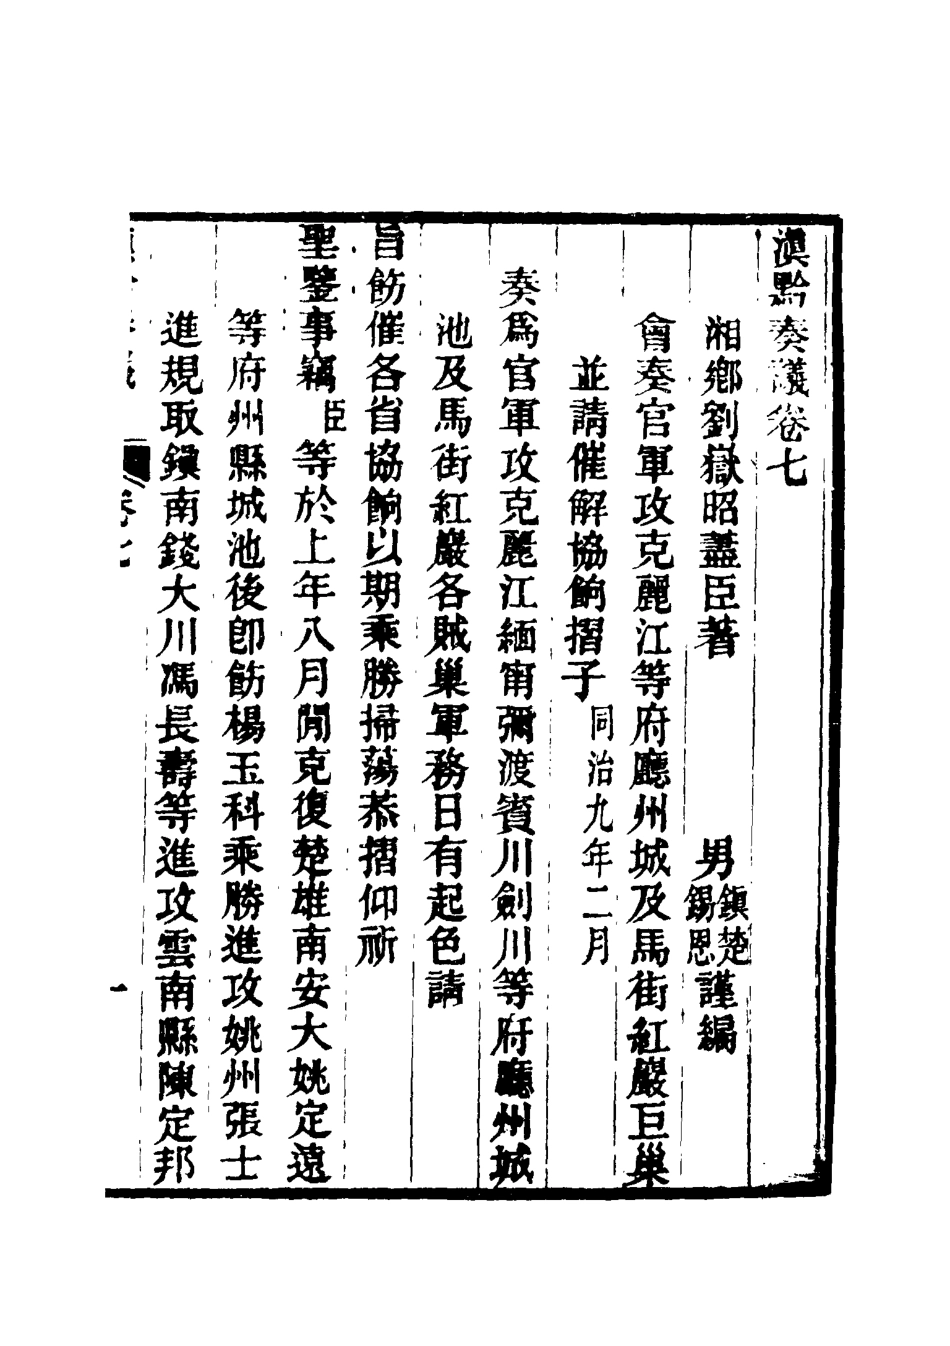 滇黔奏議卷七
湘鄉劉嶽昭藎臣著　男鎮楚錫恩謹編
會奏官軍攻克麗江等府廳州城及馬街紅巖巨巢
並請催解協餉摺子同治九年二月
奏爲官軍攻克麗江緬甯彌渡賓川劍川等府廳州城
池及馬街紅巖各賊巢軍務日有起色請
旨飭催各省協餉以期乘勝掃蕩恭摺仰祈
聖鑒事竊臣等於上年八月閒克復楚雄南安大姚定遠
等府州縣城池後卽飭楊玉科乘勝進攻姚州張士
進規取鎮南錢大川馮長壽等進攻雲南縣陳定邦
卷七
一